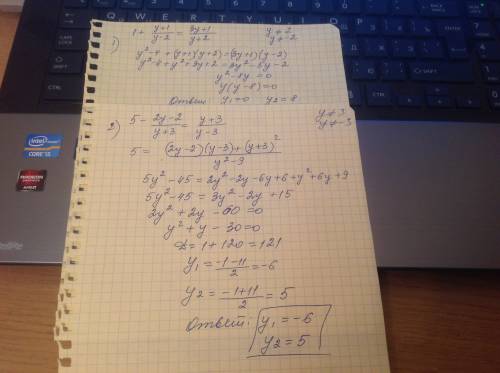 1) 1 + (y+1)/(y-2) = (3y+1)/(y+2)   y≠2
y≠-2
y²-4+(y+1)(y+2)=(3y+1)(y-2)
y²-4+y²+3y+2=3y²-5y-2
y²-8y=0
y(y-8)=0
Ответ: y₁=0   y₂=8
2) 5 - (2y-2)/(y+3) = (y+3)/(y-3)   y≠3
y≠-3
5 = ((2y-2)(y-3)+(y+3)²)/(y²-9)
5y²-45=2y²-2y-6y+6+y²+6y+9
5y²-45=3y²-2y+15
2y²+2y-60=0
y²+y-30=0
D=1+120=121
y₁=(-1-11)/2=-6
y₂=(-1+11)/2=5
Ответ: y₁=-6
y₂=5
intel
inside
CORE i5
RADEON
GRAPHICS
AMD